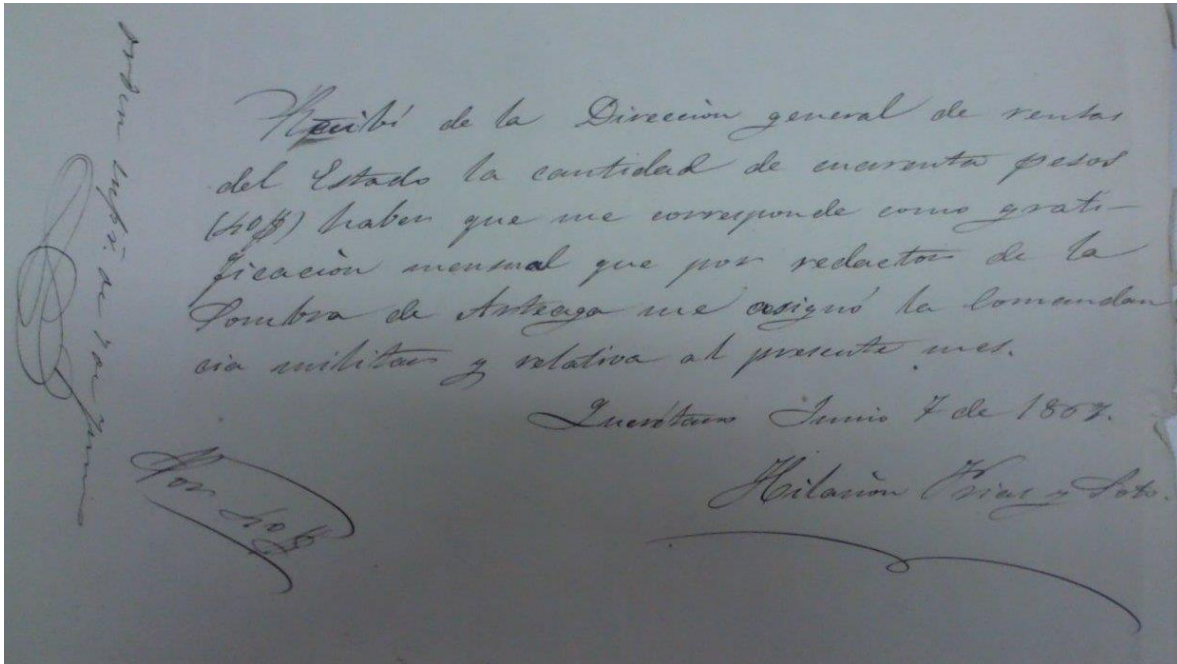 Recibí de la Dirección general de rentas
del Estado la cantidad de cuarenta pesos
(40$) haber que me corresponde como grati-
ficación mensual que por redactor de la
Sombra de Arteaga me asignó la Comandan
cia militar y relativa al presente mes.
Querétaro Junio 7 de 1867.
Hilarión Frías y Soto.
Por 40$
orden de Junio